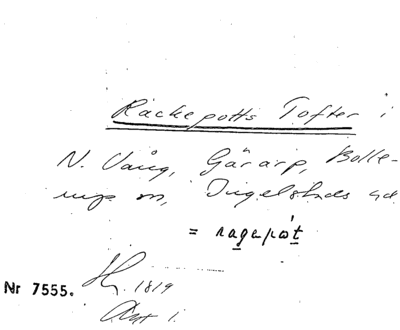 Räckepotts Tofter i
N. Vång, Gärarp, Bolle-
rup sn, Ingelstads hd.
= ragapot
Nr 7555.
1819
Akt 1.